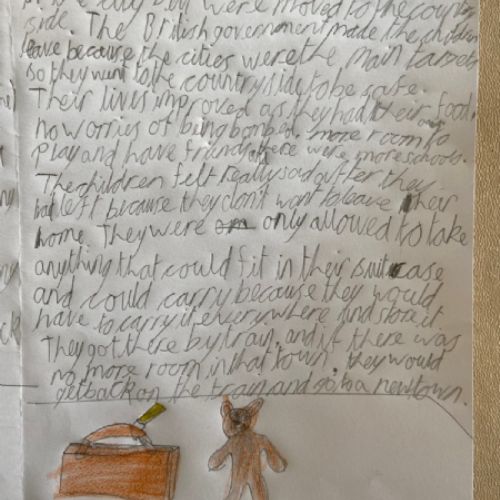 were moved to the country
side. The British government made the children
leave because the cities were the main targets
so they went to the countryside to be safe.
Their lives improved as they had their own food,
no worries of being bombed, more room to
play and have friends and there were more schools.
The children felt really sad after they
had left because they don't want to leave their
home. They were only allowed to take
anything that could fit in their suitcase
and could carry because they would
have to carry it everywhere and store it.
They got there by train, and if there was
no more room in that town, they would
get back on the train and go to a new town.